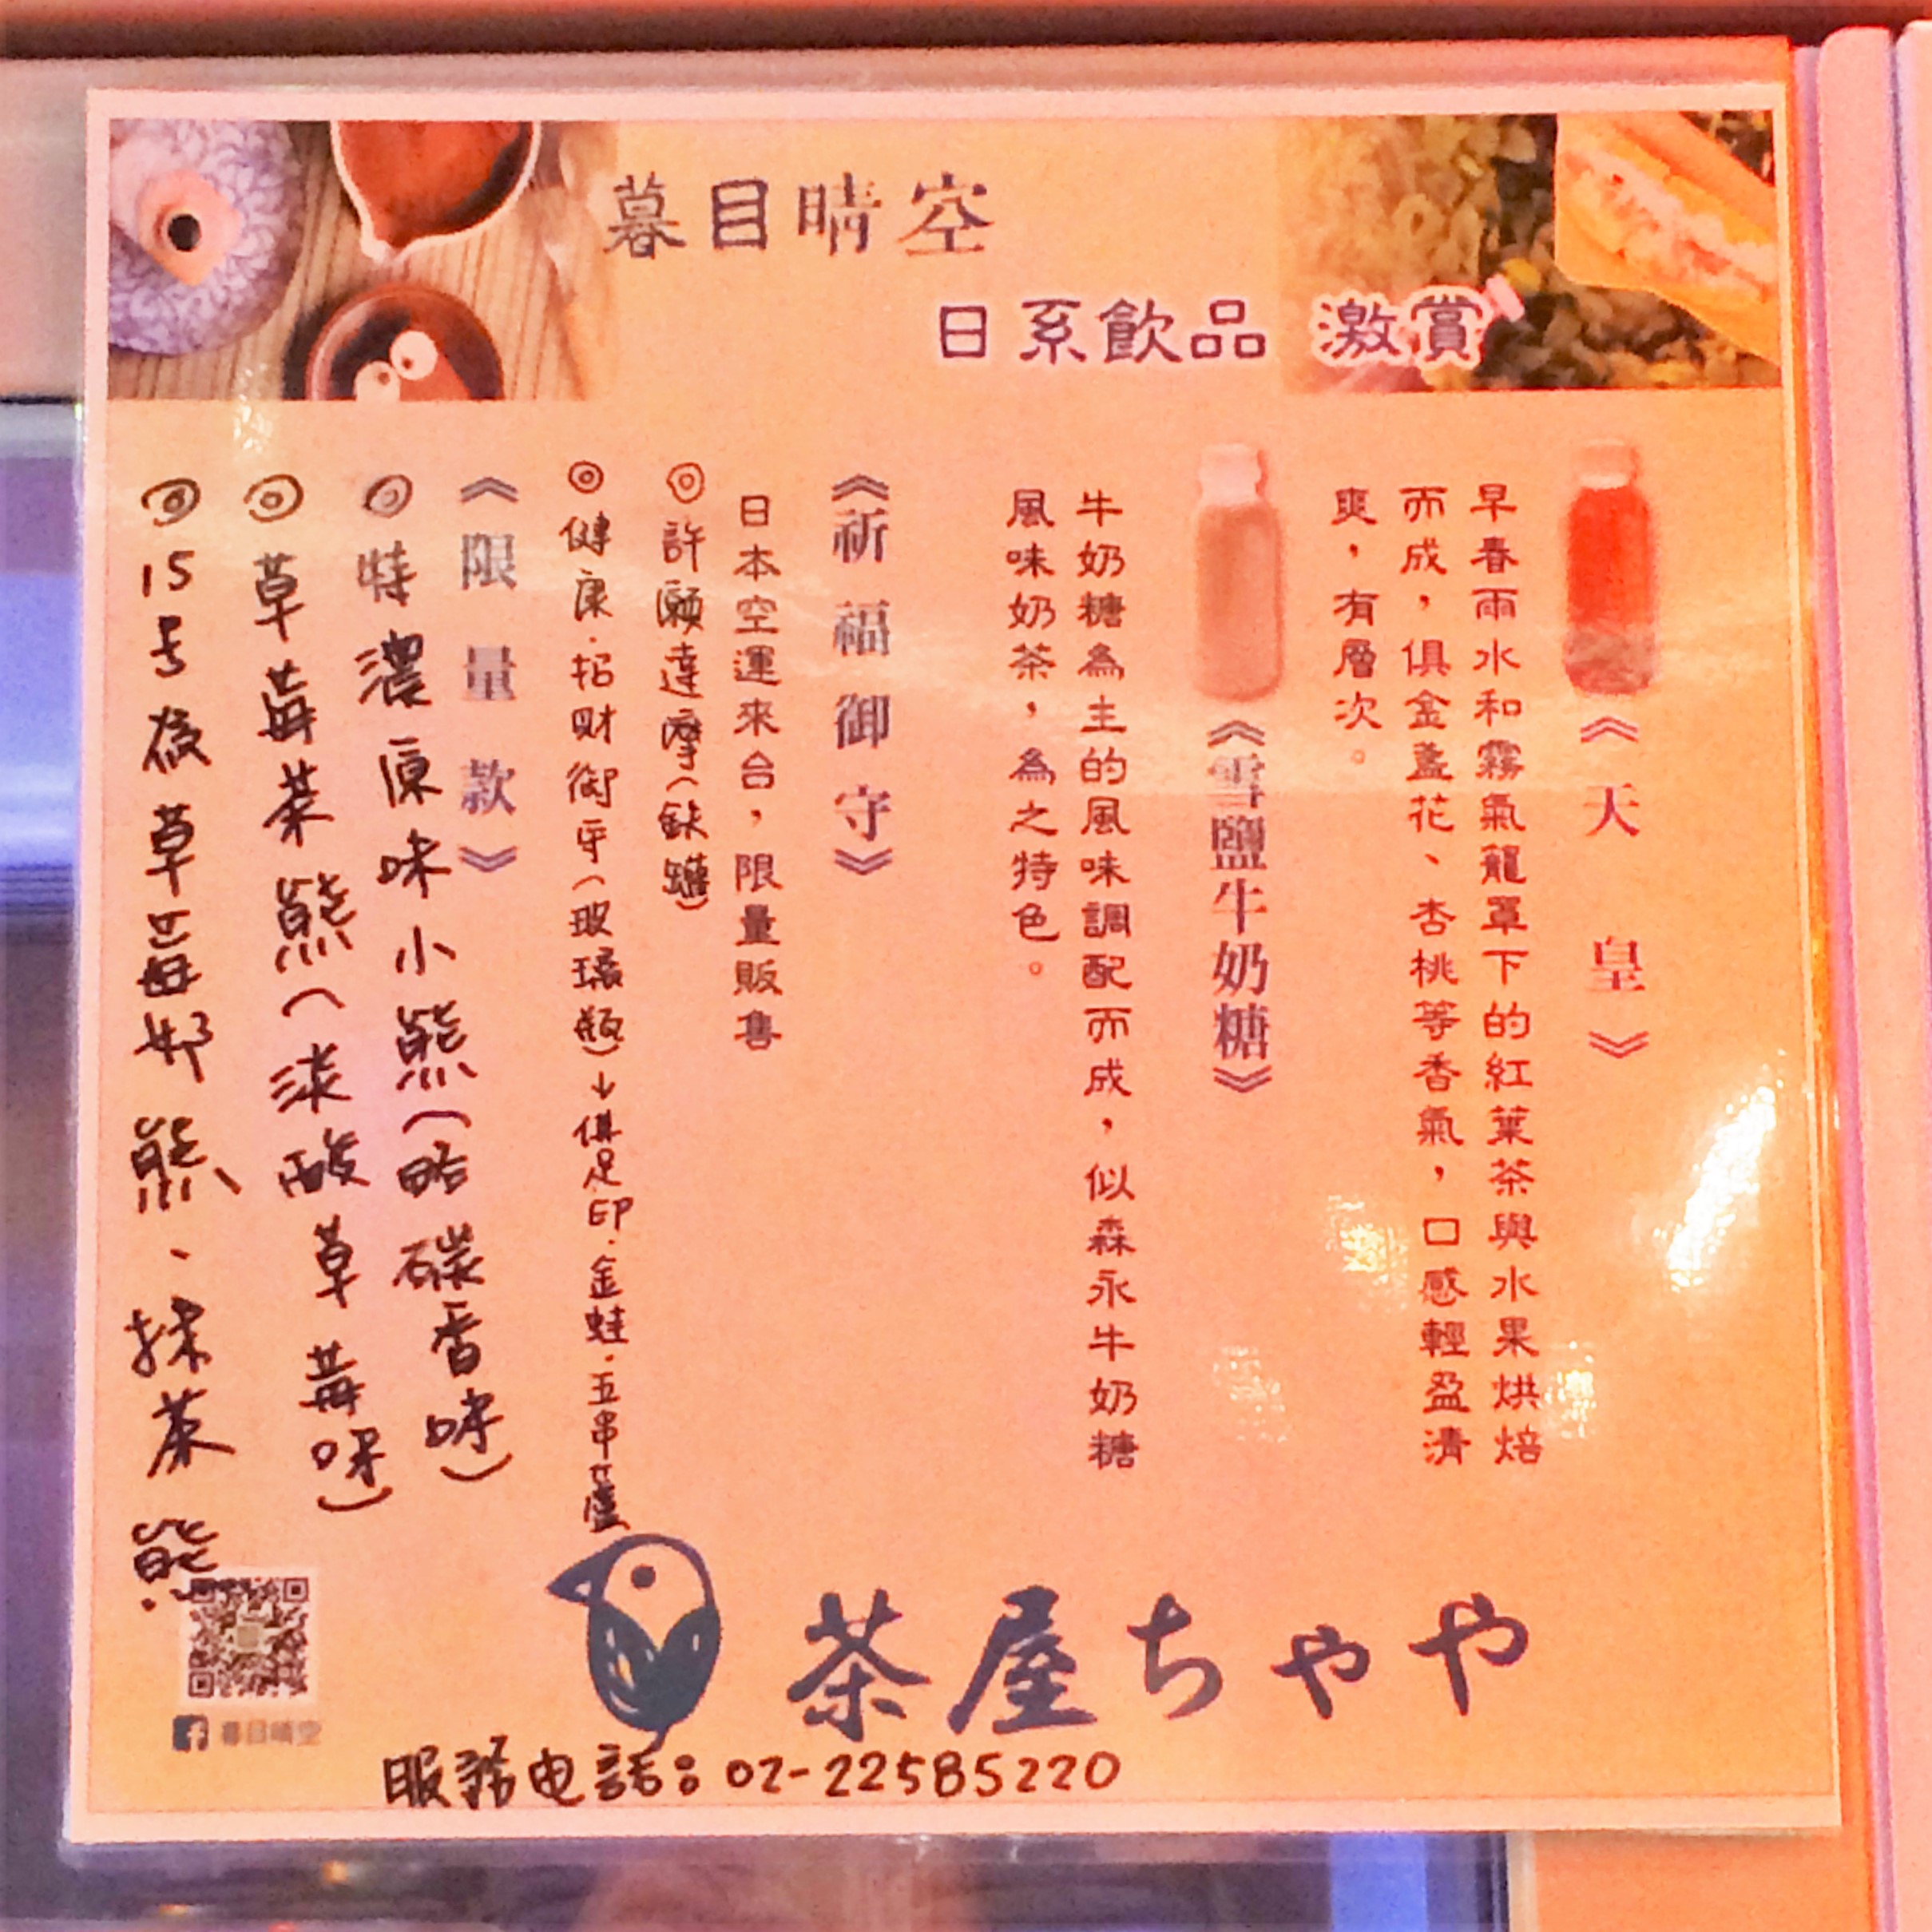 暮目晴空
日系飲品 激賞
《天皇》
早春雨水和霧氣籠罩下的紅葉茶與水果烘焙
而成，俱金盞花、杏桃等香氣，口感輕盈清
爽，有層次。
《雪鹽牛奶糖》
牛奶糖為主的風味調配而成，似森永牛奶糖
風味奶茶，為之特色。
《祈福御守》
日本空運來台，限量販售
◎許願達摩(鉄罐)
◎健康·招財御守(玻璃瓶)↓俱足印·金蛙·五串蘆
《限量款》
◎特濃原味小熊(略碳香味)
◎草莓菜熊(淡酸草莓味)
◎15号為草莓奶熊、抹茶熊
暮目晴空
茶屋ちゃや
服務电話：02-22585220